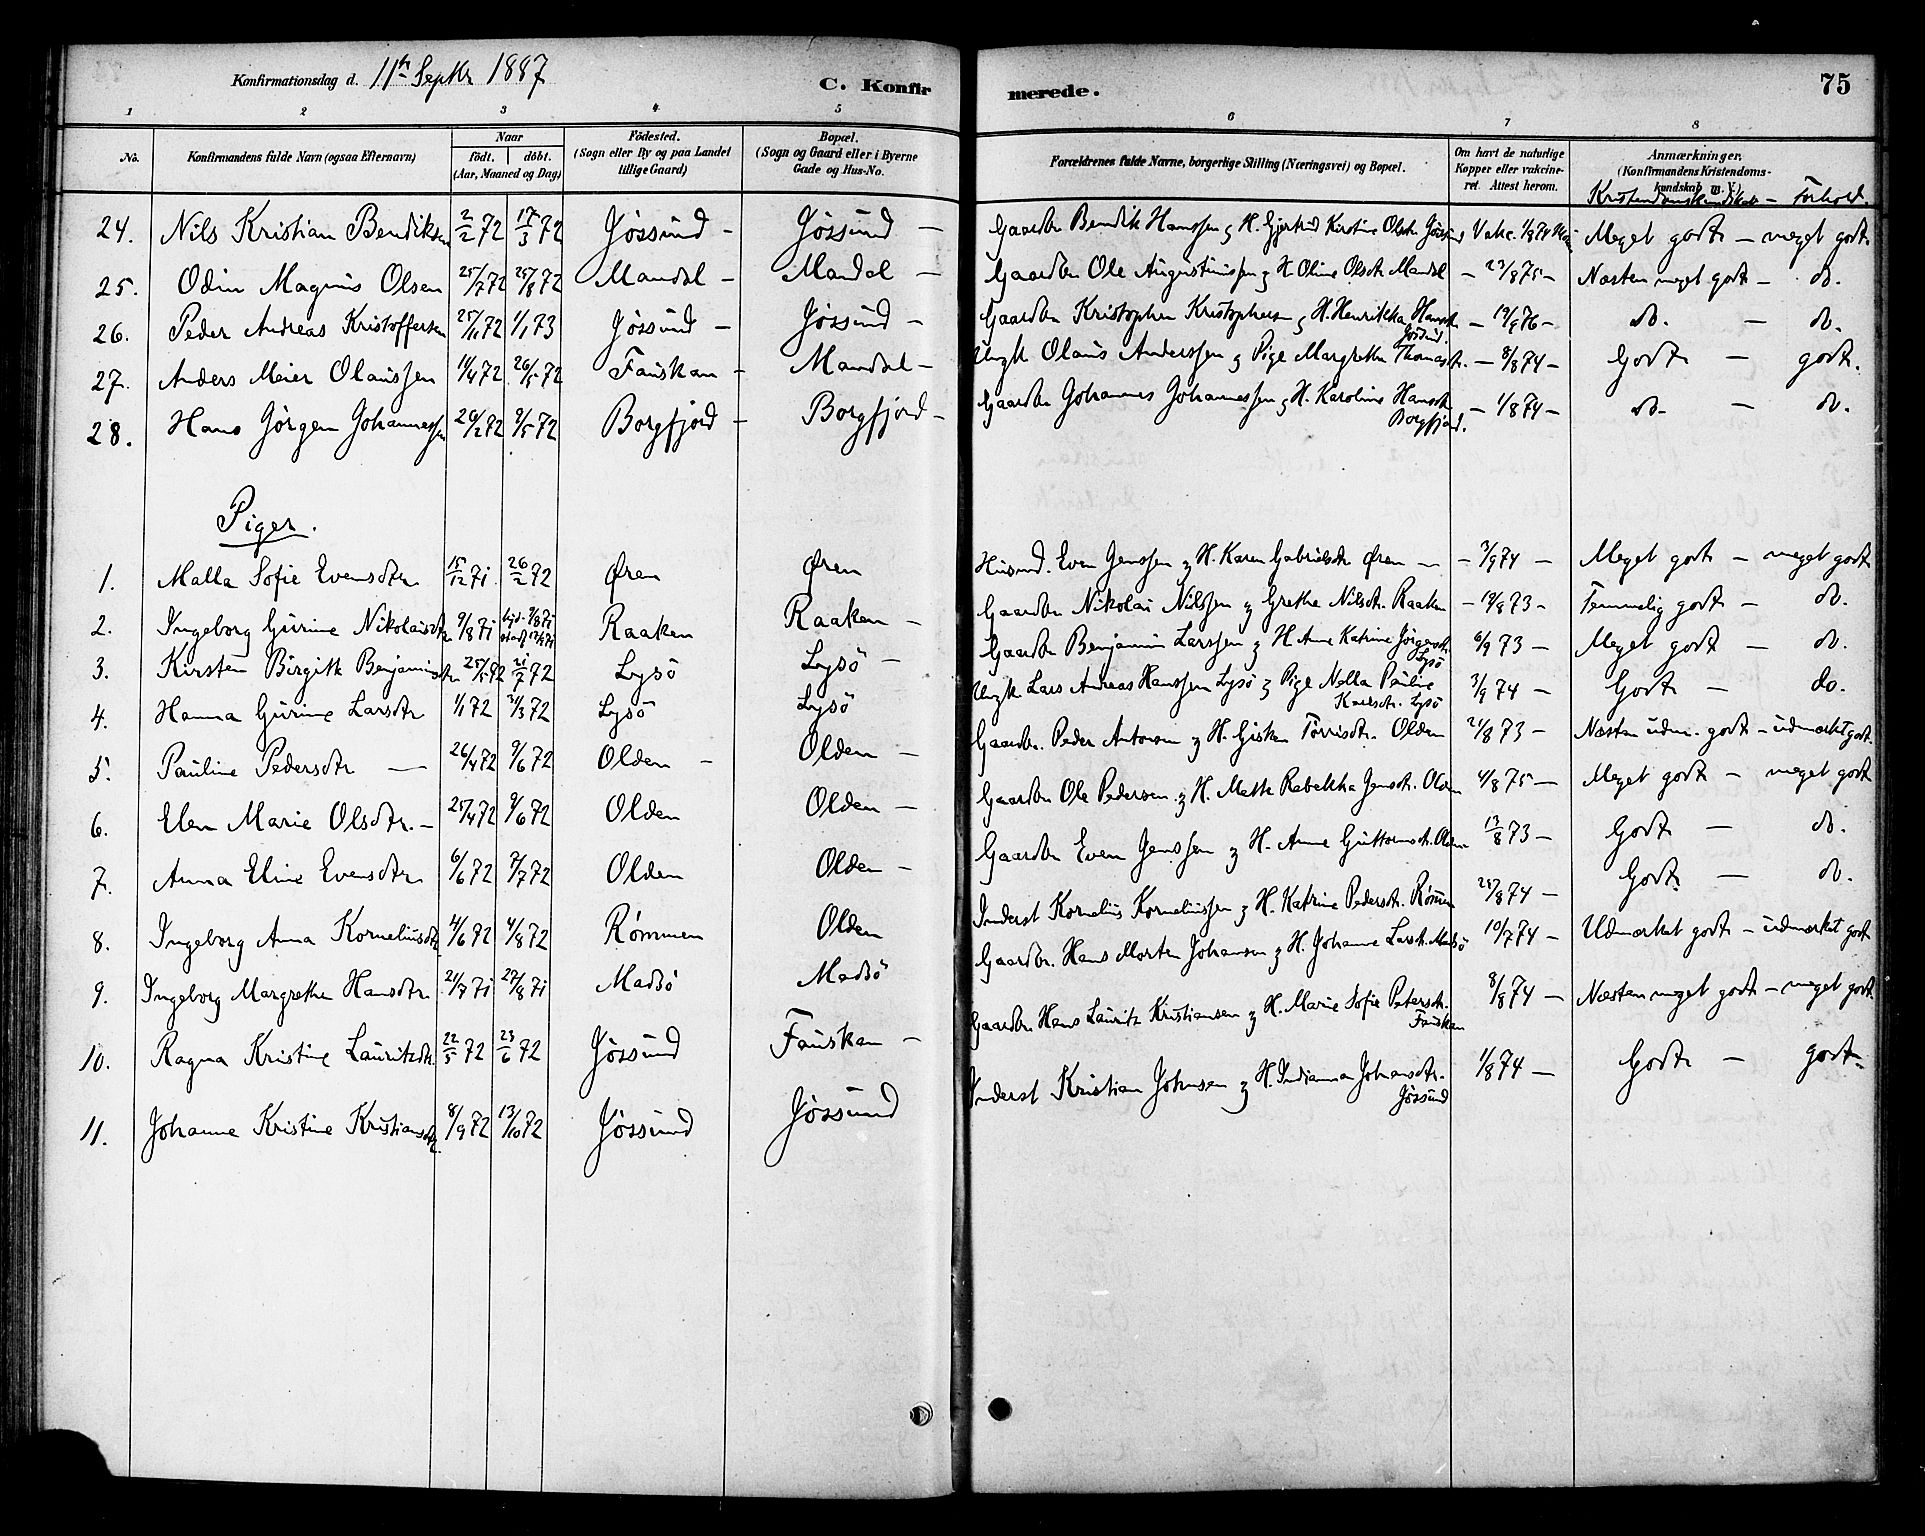 Konfirmationsdag d. 11te Septbr 1887
C. Konfirmerede.
75
1 2 3 4 5 6 7 8
No. Konfirmandens fulde Navn (ogsaa Efternavn) Naar födt. döbt. (Aar, Maaned og Dag) Födested. (Sogn eller By og paa Landet tillige Gaard) Bopæl. (Sogn og Gaard eller i Byerne Gade og Hus-No. Forældrenes fulde Navne, borgerlige Stilling (Næringsvei) og Bopæl. Om havt de naturlige Kopper eller vakcineret. Attest herom. Anmærkninger. (Konfirmandens Kristendomskundskab o. s. v.)
Kristendomskundskab — Forhold.
24. Nils Kristian Bendiksen 2/2 72 17/3 72 Jössund — Jössund — Gaardbr Bendik Hanssen & H. Gjertrud Kirstine Olsdtr Jössund Vakc. 1/8 74 Meget godt — meget godt
25. Odin Magnus Olsen 25/7 72 25/8 72 Mandal — Mandal — Gaardbr Ole Augustinussen & H. Oline Olsdtr Mandal — 23/8 75 — Næsten meget godt — do.
26. Peder Andreas Kristoffersen 25/11 72 1/1 73 Jössund — Jössund — Gaardbr Kristopher Kristophersen & H. Henrikka Hansdtr Jössund. — 19/8 76 — do. — do.
27. Anders Meier Olaussen 11/4 72 26/5 72 Fauskan — Mandal — Ungk Olaus Anderssen & Pige Margrethe Thomasdtr. — 8/8 74 — Godt — godt.
28. Hans Jörgen Johannessen 26/2 72 9/5 72 Borgfjord — Borgfjord — Gaardbr Johannes Johannessen & H. Karoline Hansdtr Borgfjord. — 1/8 74 — do. — do.
Piger.
1. Malla Sofie Evensdtr 15/12 71. 26/2 72 Øren Øren Husmd. Even Jenssen & H. Karen Gabrielsdtr Øren — — 3/9 74 — Meget godt — meget godt
2. Ingeborg Gurine Nikolaisdtr 9/8 71 Raaken Raaken — Gaardbr Nikolai Nilssen & Grethe Nilsdtr. Raaken — 19/8 73 — Temmelig godt — do.
3. Kirsten Birgitte Benjaminsdtr 25/5 72 21/7 72 Lysö Lysö — Gaardbr Benjamin Larssen & H. Ane Katrine Jörgensdtr Lysö 6/9 73 — Meget godt — do.
4. Hanna Gurine Larsdtr 1/1 72 31/3 72 Lysö Lysö Ungk Lars Andreas Hanssen Lysö & Pige Nella Pauline Karlsdtr. Lysö 3/9 74 — Godt — do.
5. Pauline Pedersdtr — 26/4 72 9/6 72 Olden — Olden — Gaardbr. Peder Antonsen & H. Gisken Torrisdtr. Olden 21/8 73 — Næsten udm. godt — udmærket godt.
6. Elen Marie Olsdtr. — 25/4 72 9/6 72 Olden Olden — Gaardbr Ole Pedersen & H. Mette Rebekka Jensdtr. Olden 4/8 75 — Meget godt — meget godt
7. Anna Eline Evensdtr 6/6 72 7/7 72 Olden Olden — Gaardbr Even Jenssen & H. Anne Guttormsdtr. Olden 13/8 73 — Godt — do.
8. Ingeborg Anna Korneliusdtr 4/6 72 4/8 72 Rømmen Olden Inderst Kornelius Korneliussen & H. Katrine Pedersdtr. Rømmen 25/8 74 — Godt. — do.
9. Ingeborg Margrethe Hansdtr. 21/7 71 27/8 71 Madsö Madsö Gaardbr. Hans Morten Johansen & H. Johanne Larsdtr. Madsö 10/7 74 — Udmærket godt — udmærket godt
10. Ragna Kristine Lauritzdtr. 22/5 72 23/6 72 Jössund Fauskan — Gaardbr. Hans Lauritz Kristiansen & H. Marie Sofie Petersdtr. Fauskan 8/8 74 — Næsten meget godt — meget godt
11. Johanne Kristine Kristiansdtr. 8/9 72 13/10 72 Jössund Jössund Inderst Kristian Johnsen & H. Indianna Johansdtr. Jössund 1/8 74 — Godt — godt —